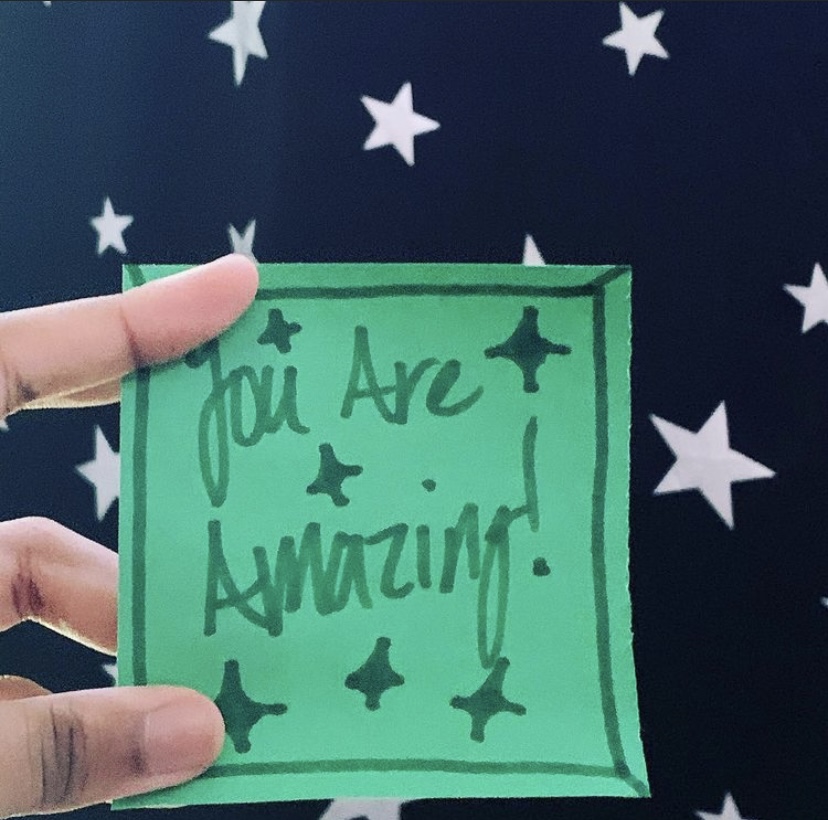 You Are
Amazing!